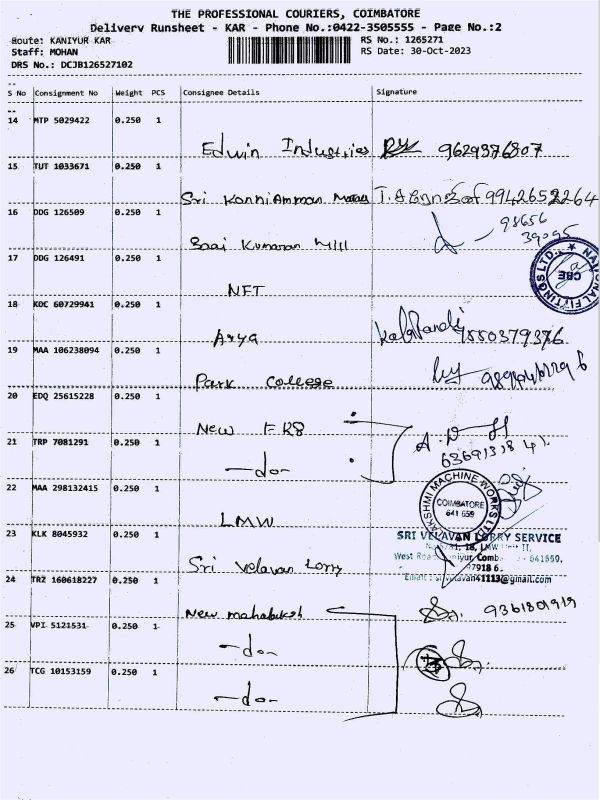 THE PROFESSIONAL COURIERS, COIMBATORE
Delivery Runsheet - KAR - Phone No.:0422-3505555 - Page No.:2
Route: KANIYUR KAR
RS No.: 1265271
Staff: MOHAN
RS Date: 30-Oct-2023
DRS No.: DCJB126527102
S No Consignment No Weight PCS Consignee Details Signature
14 MTP 5029422 0.250 1
Edwin Industries 9629376807
15 TUT 1033671 0.250 1
Sri Kanniamman 9942652264
16 DDG 126509 0.250 1
Saai Kumaran Mill 98656
39095
17 DDG 126491 0.250 1
NFT
NATIONAL FITTINGS LTD., CBE
18 KOC 60729941 0.250 1
Arya 9550379376
19 MAA 106238094 0.250 1
Park College
20 EDQ 25615228 0.250 1
New
21 TRP 7081291 0.250 1
-do-
22 MAA 298132415 0.250 1
LMW
LAKSHMI MACHINE WORKS LTD
COIMBATORE
641 659
23 KLK 8045932 0.250 1
Sri Velavan Lorry
SRI VELAVAN LORRY SERVICE
18, LMW Unit II,
West Kaniyur, 641659,
24 TRZ 160618227 0.250 1
New 9361801919
25 VPI 5121531 0.250 1
-do-
26 TCG 10153159 0.250 1
-do-